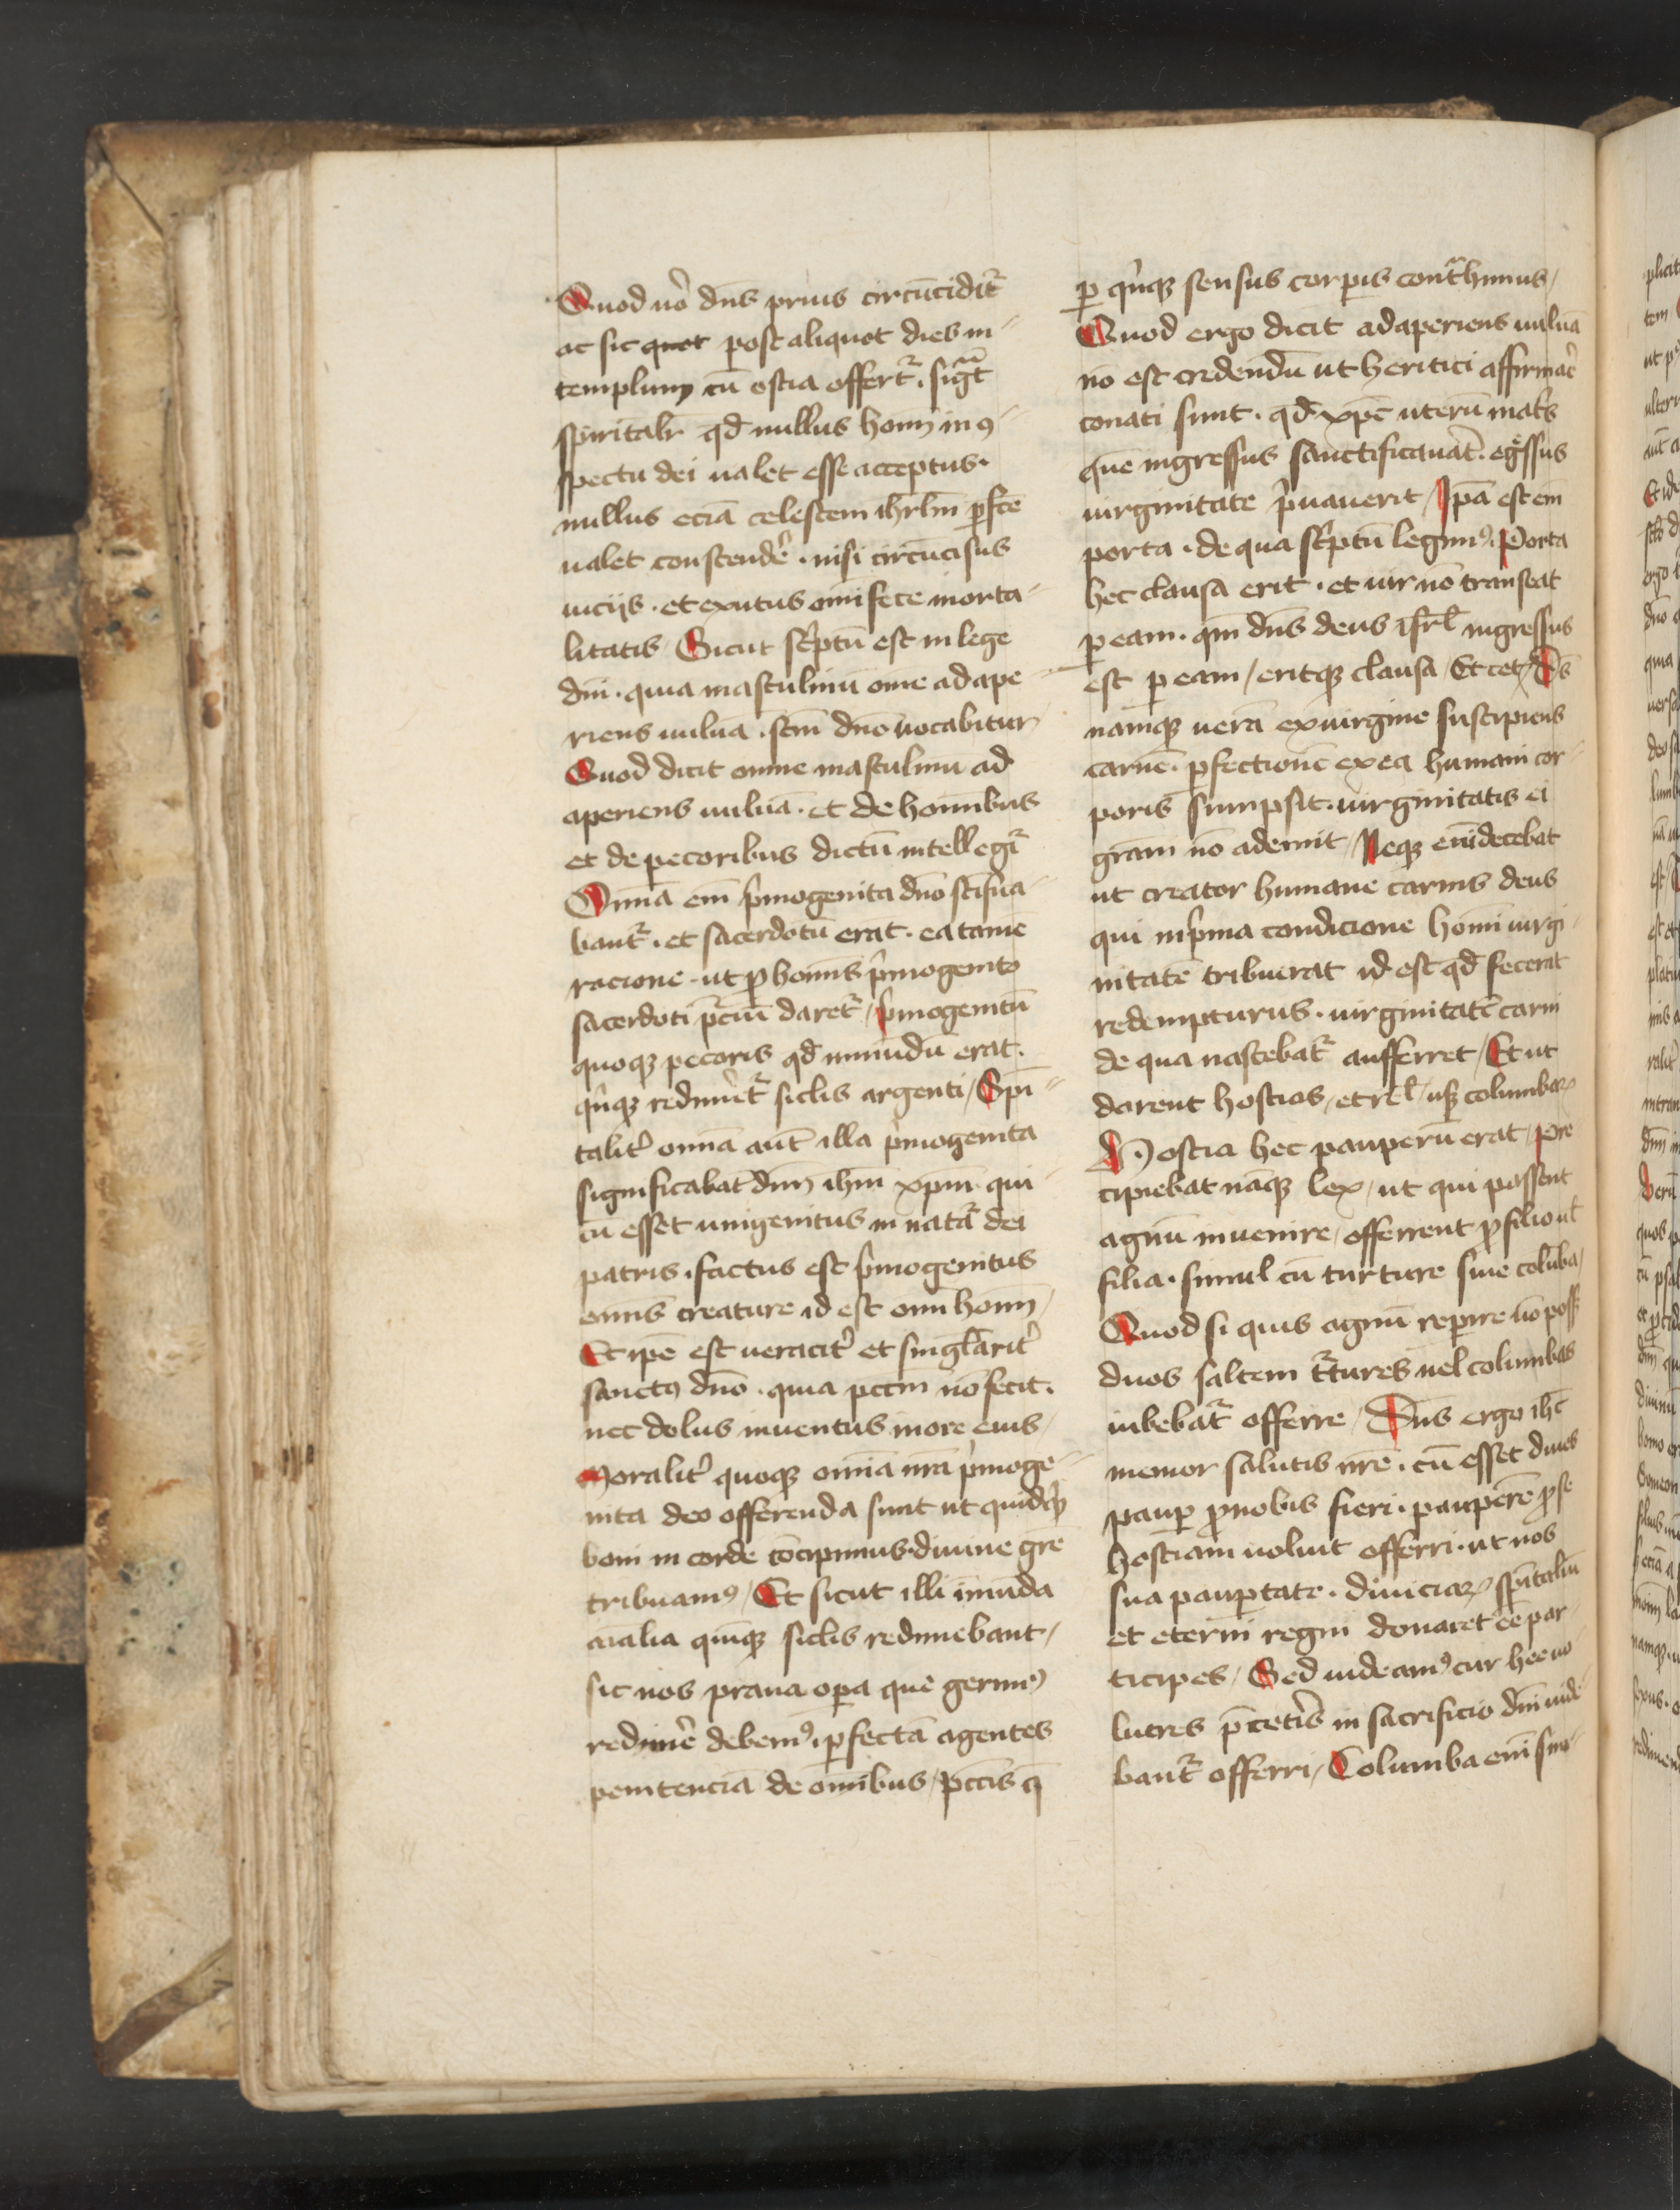 Quod uo᷑ dn̄s prius circūcidit᷑
ac sic quot post aliquot dies in
templum cū ostia offert᷑ . sigᷓt
spiritalr̄ qd̄ nullus homī in ꝯ
spectu dei ualet esse acceptus .
nullus eciā celestem ihrlm̄ ꝑfc̄e
ualet conscende᷑ . nisi circūcisus
uicijs . et exutus om̄i fece morta
litatis / Sicut sc͛ptū est in lege
dn̄i . quia masculinū om̄e adape
riens uuluā . scm̄ dn̄o uocabitur
Quod dicit omne masculinu ad
aperiens uuluā . et de homībus
et de pecoribus dictū intellegit᷑
Omnia em̄ p͛mogenita dn̄o sc̄ifica
bant᷑ . et sacerdotū erāt . ea tame
racione . ut ꝓ homīs p͛mogenito
sacerdoti p̄ciū daret᷑ / p͛mogenitū
quoqꝫ pecoris qd̄ inmūdū erat .
qi̇nqꝫ redimet᷑ siclis argenti / Spi
talit᷑ omīa aut̄ illa p͛mogenita
significabāt dn̄m ihm̄ xpm̄ qui
cū esset unigenitus in natᷓ dei
patris . factus est p͛mogenitus
omīs creature id est omī homī /
Et ipē est ueracit᷑ et singl̄arit᷑
sanctꝯ dn̄o . quia pccm̄ nō fecit .
nec dolus inuentus in ore eius /
Moralit᷑ quoqꝫ omīa nr̄a p͛moge
nita deo offerenda sunt ut quidqͥd
boni in corde cōcipimus . diuine gr̄e
tribuamꝯ / Et sicut illi inmūda
aīalia quīqꝫ siclis redimebant /
sic nos praua oꝑa que gerimꝯ
redime᷑ debemꝯ . ꝑfectā agentes
penitenciā de omībus / pccīs q̄
ꝑ qi̇nqꝫ sensus corꝑis contᷓhimus /
Quod ergo dicit adaperiens uuluā
nō est credendū ut heretici affirmar᷑
conati sunt . qd̄ xpc̄ uterū matis
que ingressus sanctificauat᷑ . egͤssus
uirginitate p͛uauerit / Ipā est em̄
porta . de qua sc͛ptū legimꝯ . Porta
hec clausa erit . et uir nō transeat
ꝑ eam . qm̄ dn̄s deus isrl̄ ingressus
est ꝑ eam / eritqꝫ clausa / Et cetꝫ / Ds̄
namqꝫ uerā ex uirgine suscipiens
carnē . ꝑfectionē ex ea humani cor
poris sumpsit . uirginitatis ei
gr̄am nō ademit / Neqꝫ eni decebat
ut creator humane carnis deus
qui in p͛ma condicione homī uirgi
nitatē tribuerat id est qd̄ fecerat
redempturus . uirginitatē carni
de qua nascebat᷑ aufferret / Et ut
darent hostias / et rel̄ / usqꝫ columbaꝝ
Hostia hec pauperū erat / Pre
cipiebat nāqꝫ lex / ut qui possent
agnū inuenire / offerrent ꝓ filio ul̄
filia . simul cū turture siue colūba /
Quod si quis agnū reperire nō poss̄
duos saltem tᷣtures uel columbas
iubebat᷑ offerre / Dn̄s ergo ihc̄
memor salutis nr̄e . cū esset diues
pauꝑ ꝓ nobis fieri . pauperē ꝓ se
hostiam uoluit offerri . ut nos
sua pauꝑtate . diuiciaꝝ spītaliū
et eterni regni donaret ēe par
ticipes / Sed uideamꝯ cur hee uo
lucres p̄ cetis̄ in sacrificio dn̄i iude
bant᷑ offerri / Columba eni sim